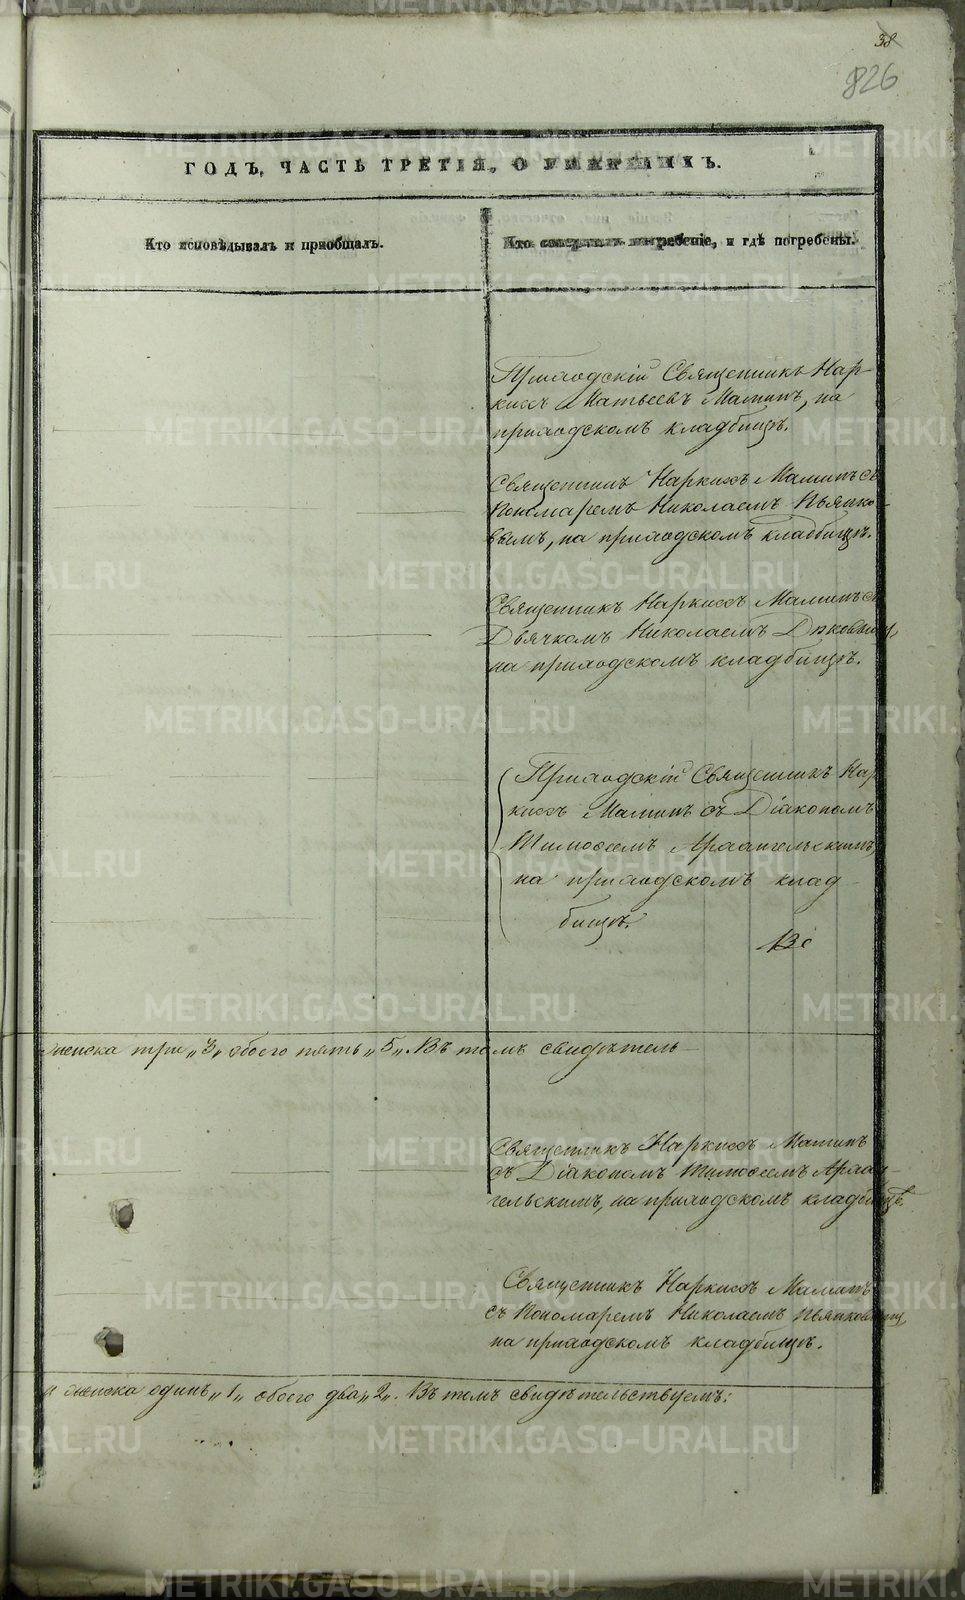 38
826
ГОДЪ, ЧАСТЬ ТРЕТІЯ, О УМЕРШИХЪ.
Кто исповѣдывалъ и пріобщалъ.
Кто совершалъ погребеніе, и гдѣ погребены.
Приходскій Священникъ Нар-
кисъ Матвеевъ Маминъ, на
приходскомъ кладбищѣ.
Священникъ Наркисъ Маминъ съ
Пономаремъ Николаемъ Пьянко-
вымъ, на приходскомъ кладбищѣ.
Священникъ Наркисъ Маминъ съ
Дьячкомъ Николаемъ
на приходскомъ кладбищѣ.
Приходскій Священникъ Нар
кисъ Маминъ съ Діакономъ
Тимофеемъ Архангельскимъ,
на приходскомъ клад
бищѣ.
женска три „3„ обоего пять „5„. Въ томъ свидѣтель
Священникъ Наркисъ Маминъ
съ Діакономъ Тимофеемъ Архан-
гельскимъ, на приходскомъ кладбищѣ.
Священникъ Наркисъ Маминъ
съ Пономаремъ Николаемъ Пьянковымъ
на приходскомъ кладбищѣ.
и женска одинъ „1„ обоего два „2„. Въ томъ свидѣтельствуемъ:
METRIKI.GASO-URAL.RU